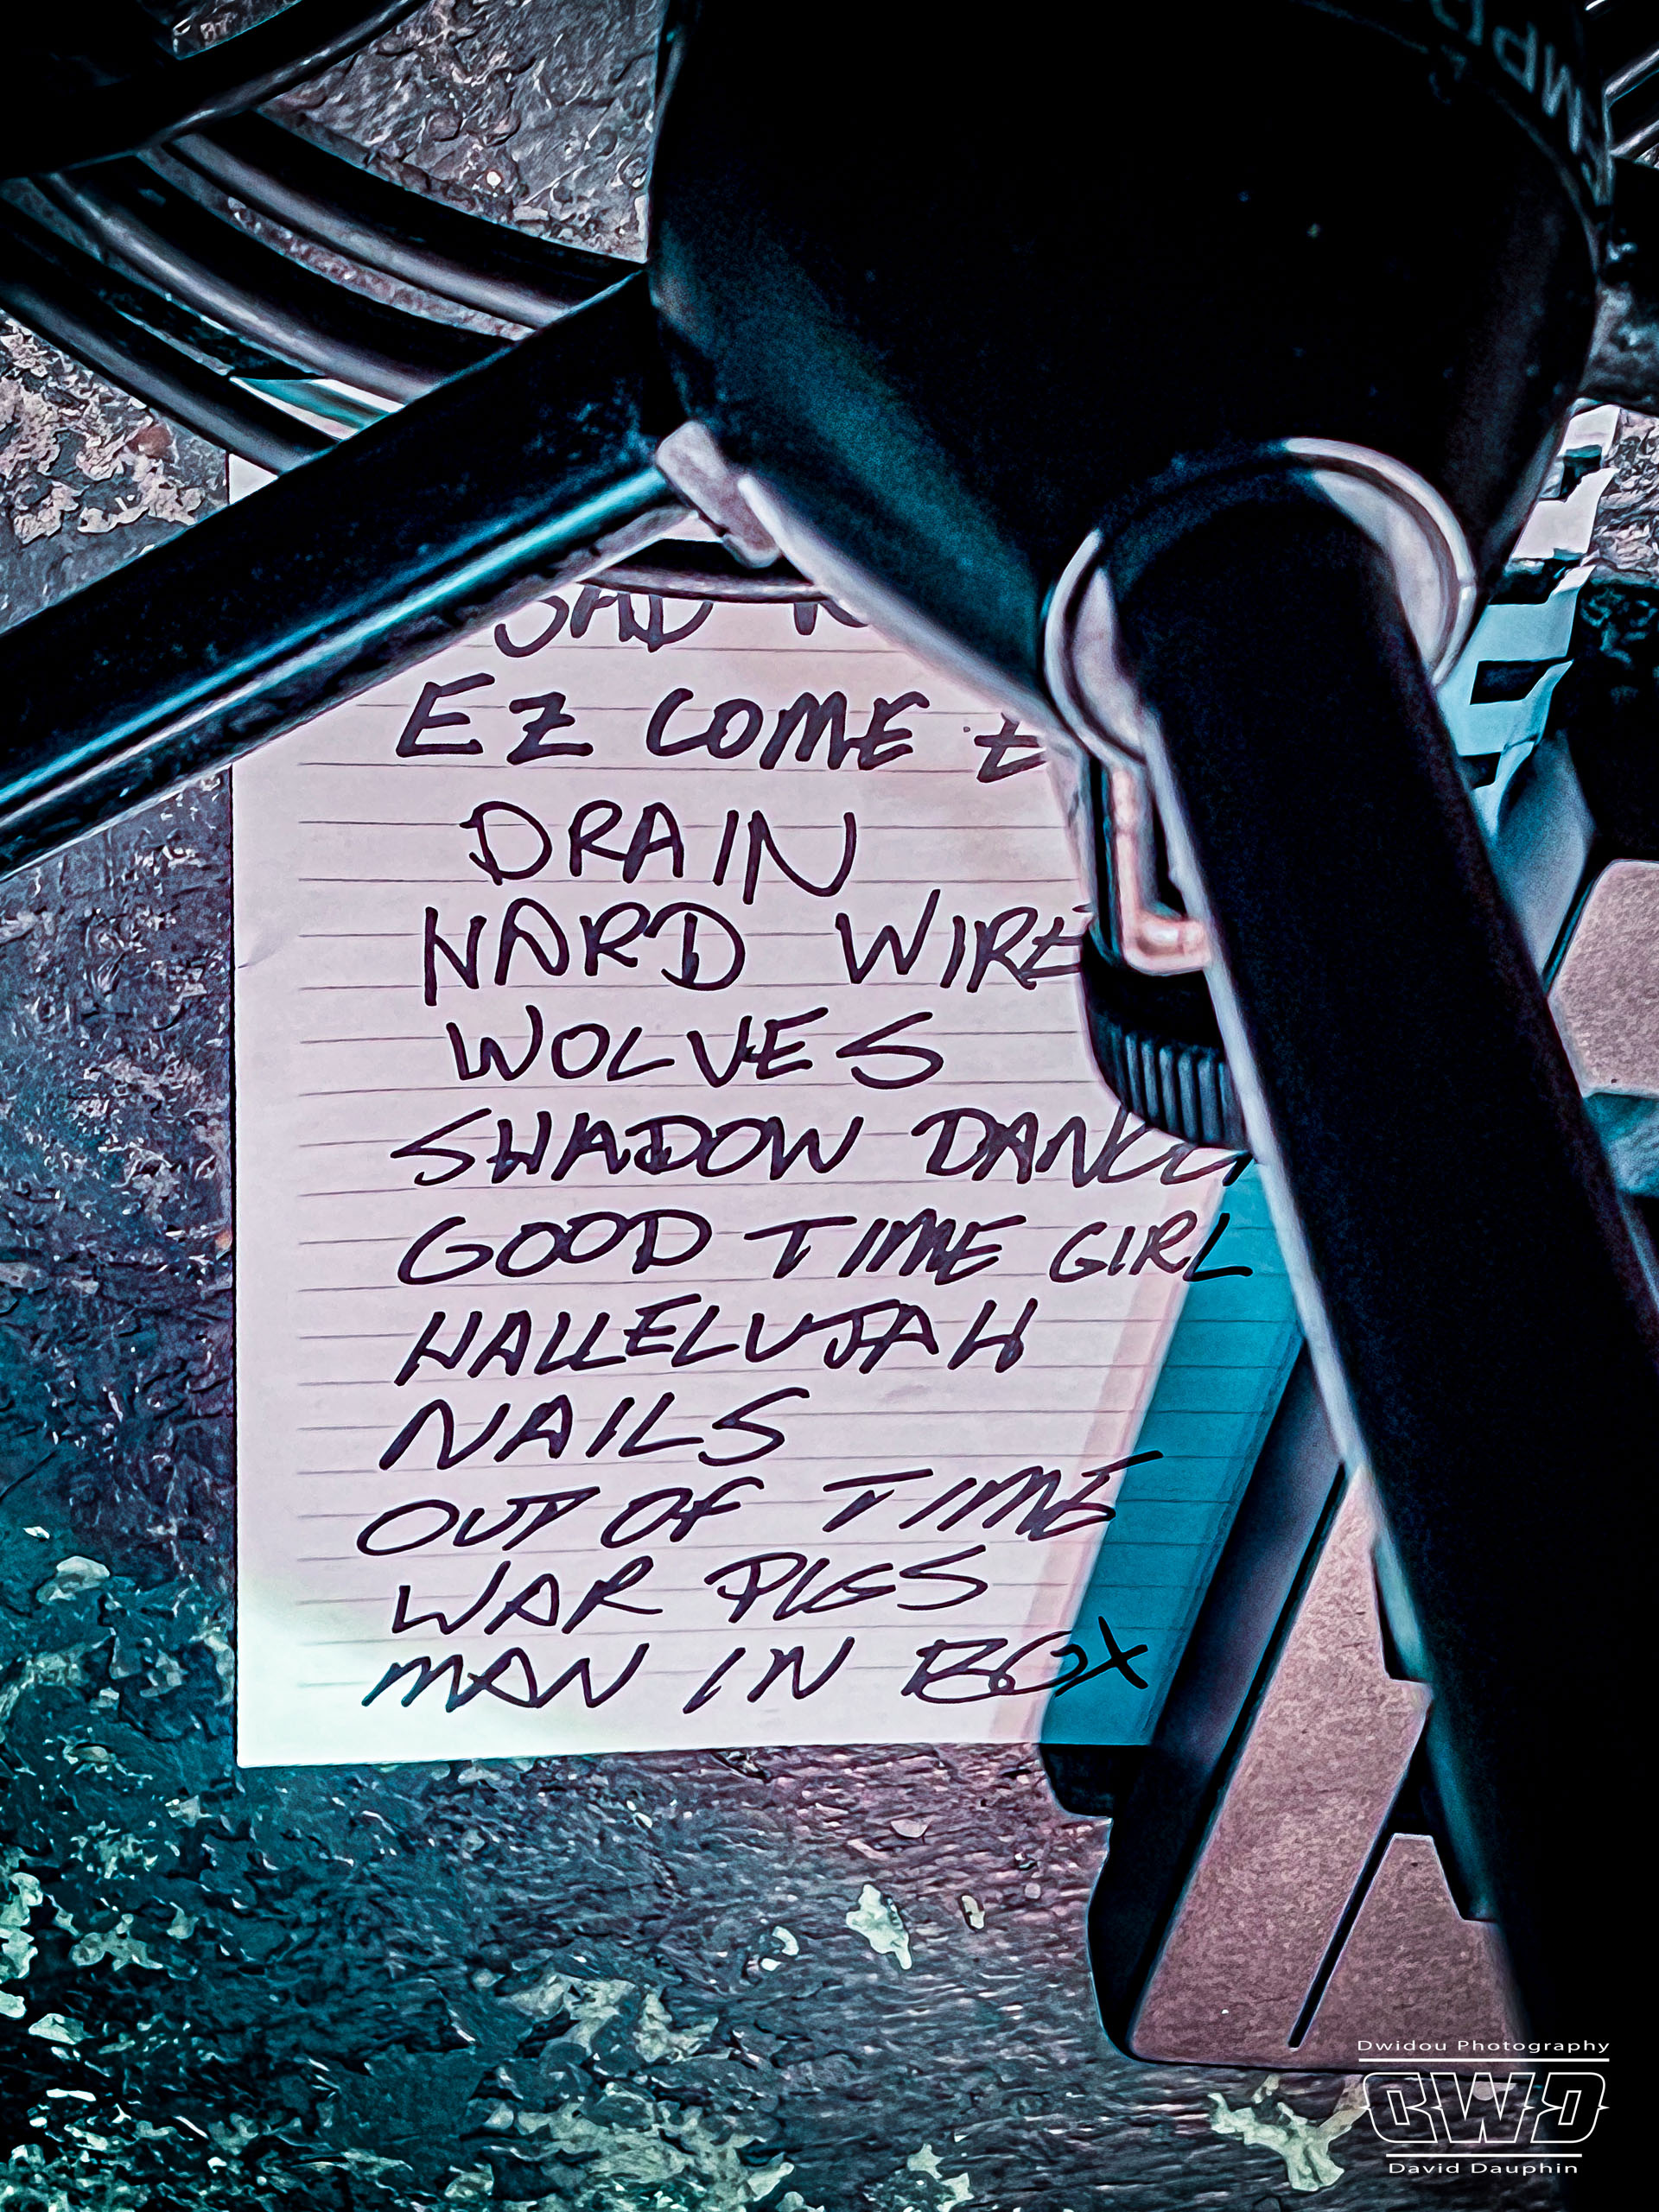 SAD
EZ COME E
DRAIN
HARD WIRE
WOLVES
SHADOW DANCE
GOOD TIME GIRL
HALLELUJAH
NAILS
OUT OF TIME
WAR PIGS
MAN IN BOX
Dwidou Photography
DWD
David Dauphin